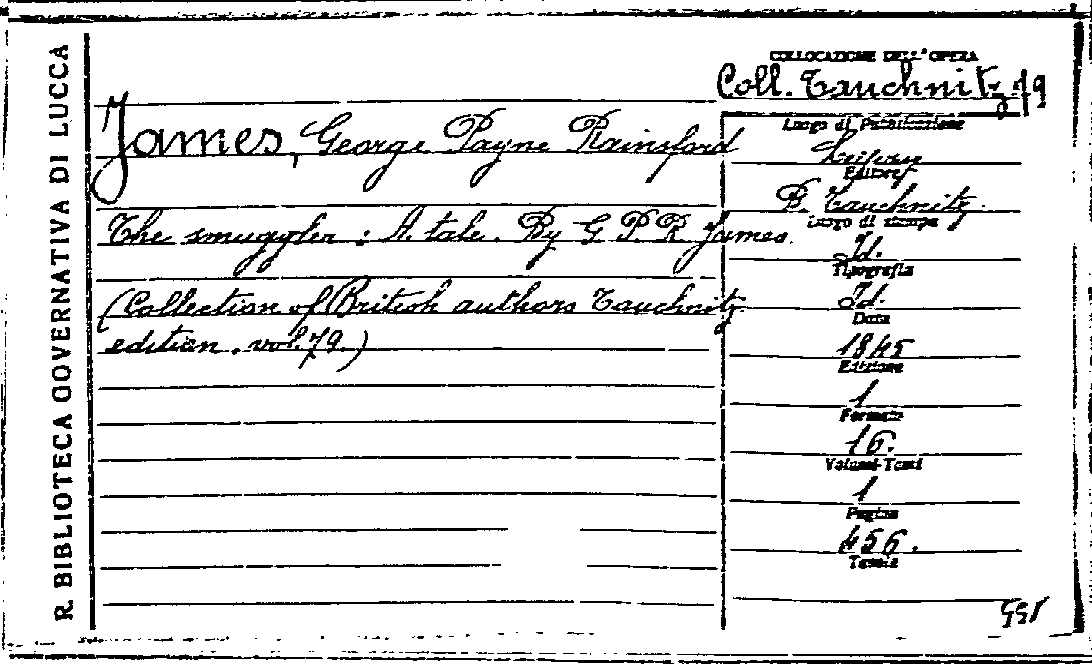 R. BIBLIOTECA GOVERNATIVA DI LUCCA
COLLOCAZIONE DELL'OPERA
Coll. Tauchnitz 79
James, George Payne Rainsford
The smuggler : A tale. By G. P. R. James.
(Collection of British authors Tauchnitz
edition. vol. 79.)
Luogo di Pubblicazione
Editore
B. Tauchnitz.
Luogo di stampa
Id.
Tipografia
Id.
Data
1845
Edizione
1
Formato
16.
Volumi-Tomi
1
Pagine
456.
Tavole